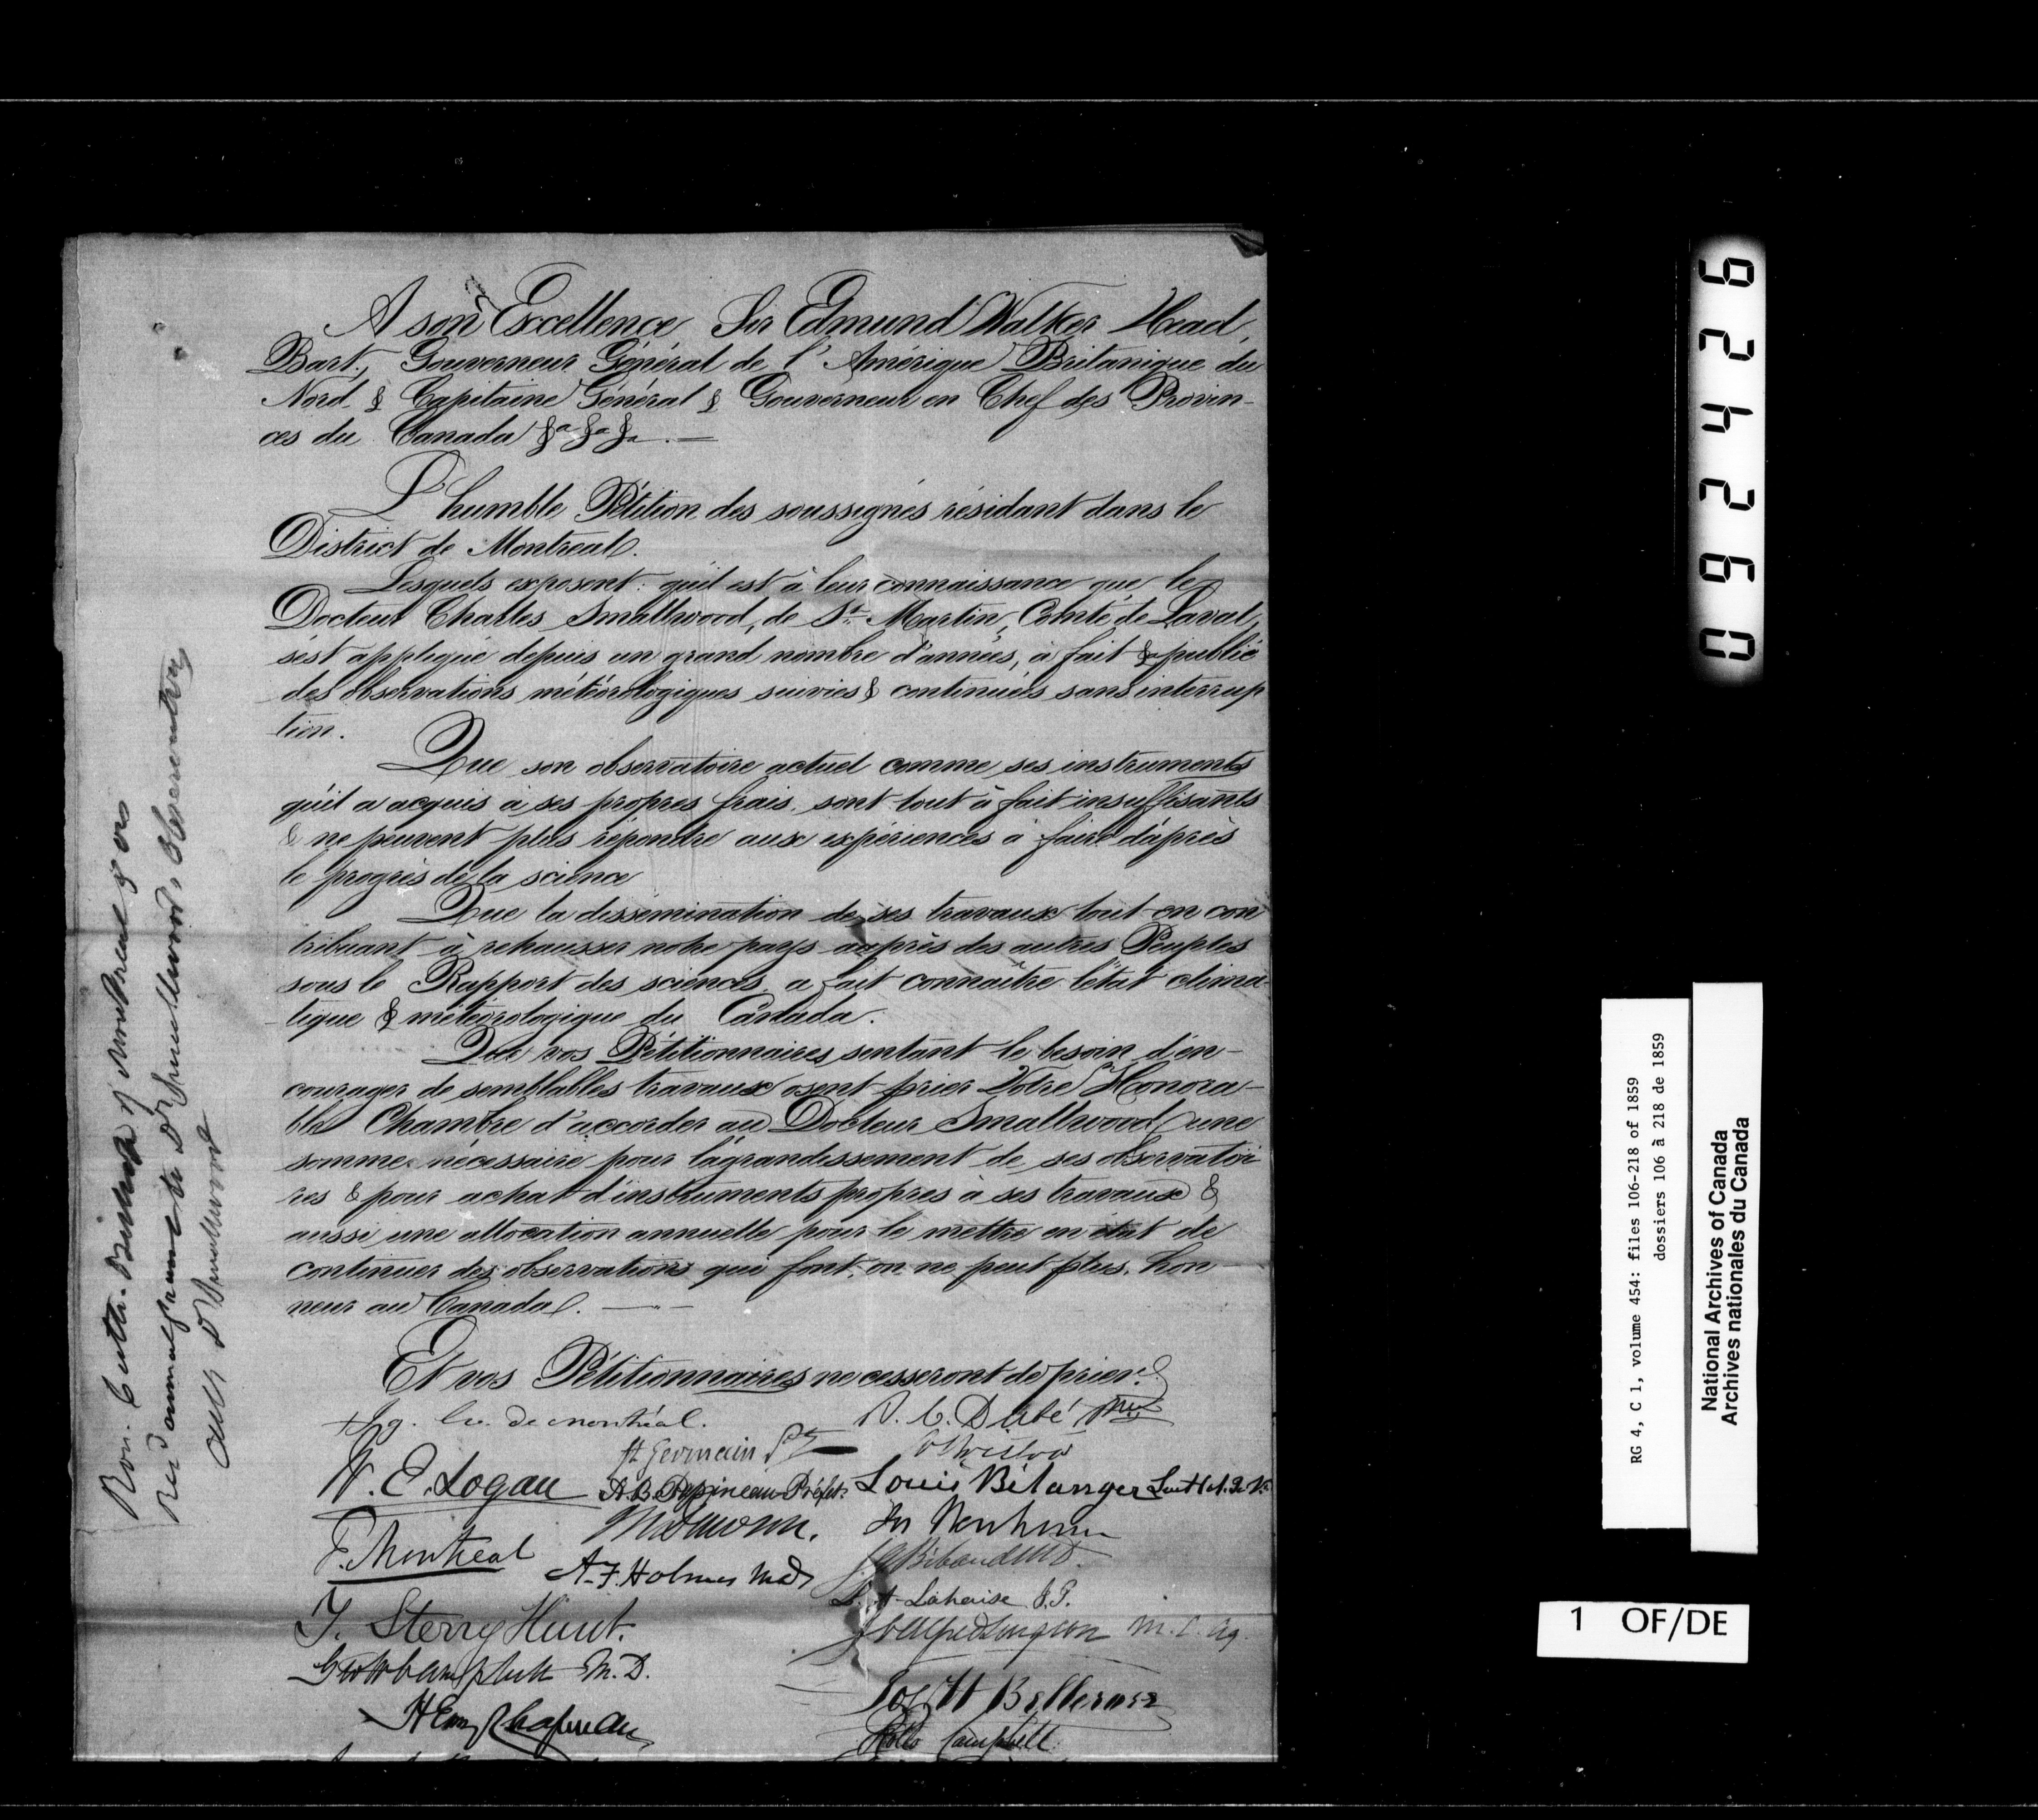 A son Excellence Sir Edmund Walker Head,
Bart., Gouverneur Général de l'Amérique Britanique du
Nord & Capitaine Général & Gouverneur en Chef des Provin-
ces du Canada &a &a &a. —
L'humble Pétition des soussignés résidant dans le
District de Montréal.
Lesquels exposent: qu'il est à leur connaissance que le
Docteur Charles Smallwood, de St. Martin, Comté de Laval,
s'est appliqué depuis un grand nombre d'années, a fait & publié
des observations météorologiques suivies & continuées sans interrup
tion.
Que son observatoire actuel comme ses instruments
qu'il a acquis à ses propres frais, sont tout à fait insuffisants
& ne peuvent plus répondre aux expériences à faire d'après
le progrès de la science
Que la dissémination de ses travaux tout en con
tribuant à rehausser notre pays auprès des autres Peuples
sous le Rapport des sciences, a fait connaître l'état clima-
tique & météorologique du Canada.
Que vos Pétitionnaires sentant le besoin d'en-
courager de semblables travaux osent prier Votre Honora-
ble Chambre d'accorder au Docteur Smallwood une
somme nécessaire pour l'agrandissement de ses observatoi
res & pour achat d'instruments propres à ses travaux &
aussi une allocation annuelle pour le mettre en état de
continuer des observations qui font, on ne peut plus, hon
neur au Canada. —
Et vos Pétitionnaires ne cesseront de prier.
+ Ig. Ev. de Montréal.
St Germain Ptre
W. E. Logan
A. B. Papineau Préfet.
F. Montreal
A. F. Holmes MD
T. Sterry Hunt.
Geo W Campbell M.D.
Henry Chapman
Louis Bélanger
Bibaud MD.
L. H. Lahaise J.P.
Jos. H Bellerose
Rollo Campbell
Rom: Cath. Bishop of Montreal & ors
Recd annual grant to Dr Smallwoods Observatory
Dr Smallwood
092426
RG 4, C 1, volume 454: files 106-218 of 1859
dossiers 106 à 218 de 1859
National Archives of Canada
Archives nationales du Canada
1 OF/DE